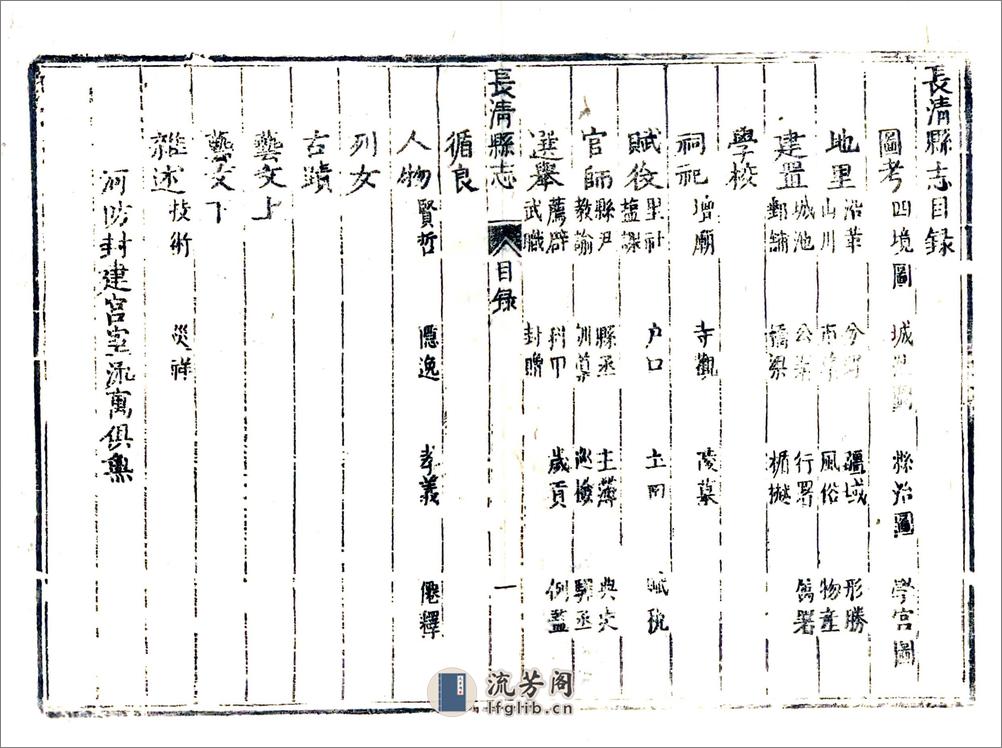 長清縣志目録
圖考 四境圖 城池圖 縣治圖 學宮圖
地里 沿革 分野 疆域 形勝
山川 市集 風俗 物產
建置 城池 公署 行署 舊署
郵鋪 橋梁 楯撼
學校
祠祀 壇廟 寺觀 陵墓
賦役 里社 户口 土田 賦稅
塩課
官師 縣尹 縣丞 主簿 典史
教諭 訓導 巡檢 驛丞
選舉 薦辟 科甲 歲貢 例監
武職 封贈
長清縣志
目録
一
循良
人物 賢哲 隱逸 孝義 僊釋
列女
古蹟
藝文上
藝文下
雜述 技術 災祥
河防封建宫室流寓俱無
流芳阁
lfglib.cn